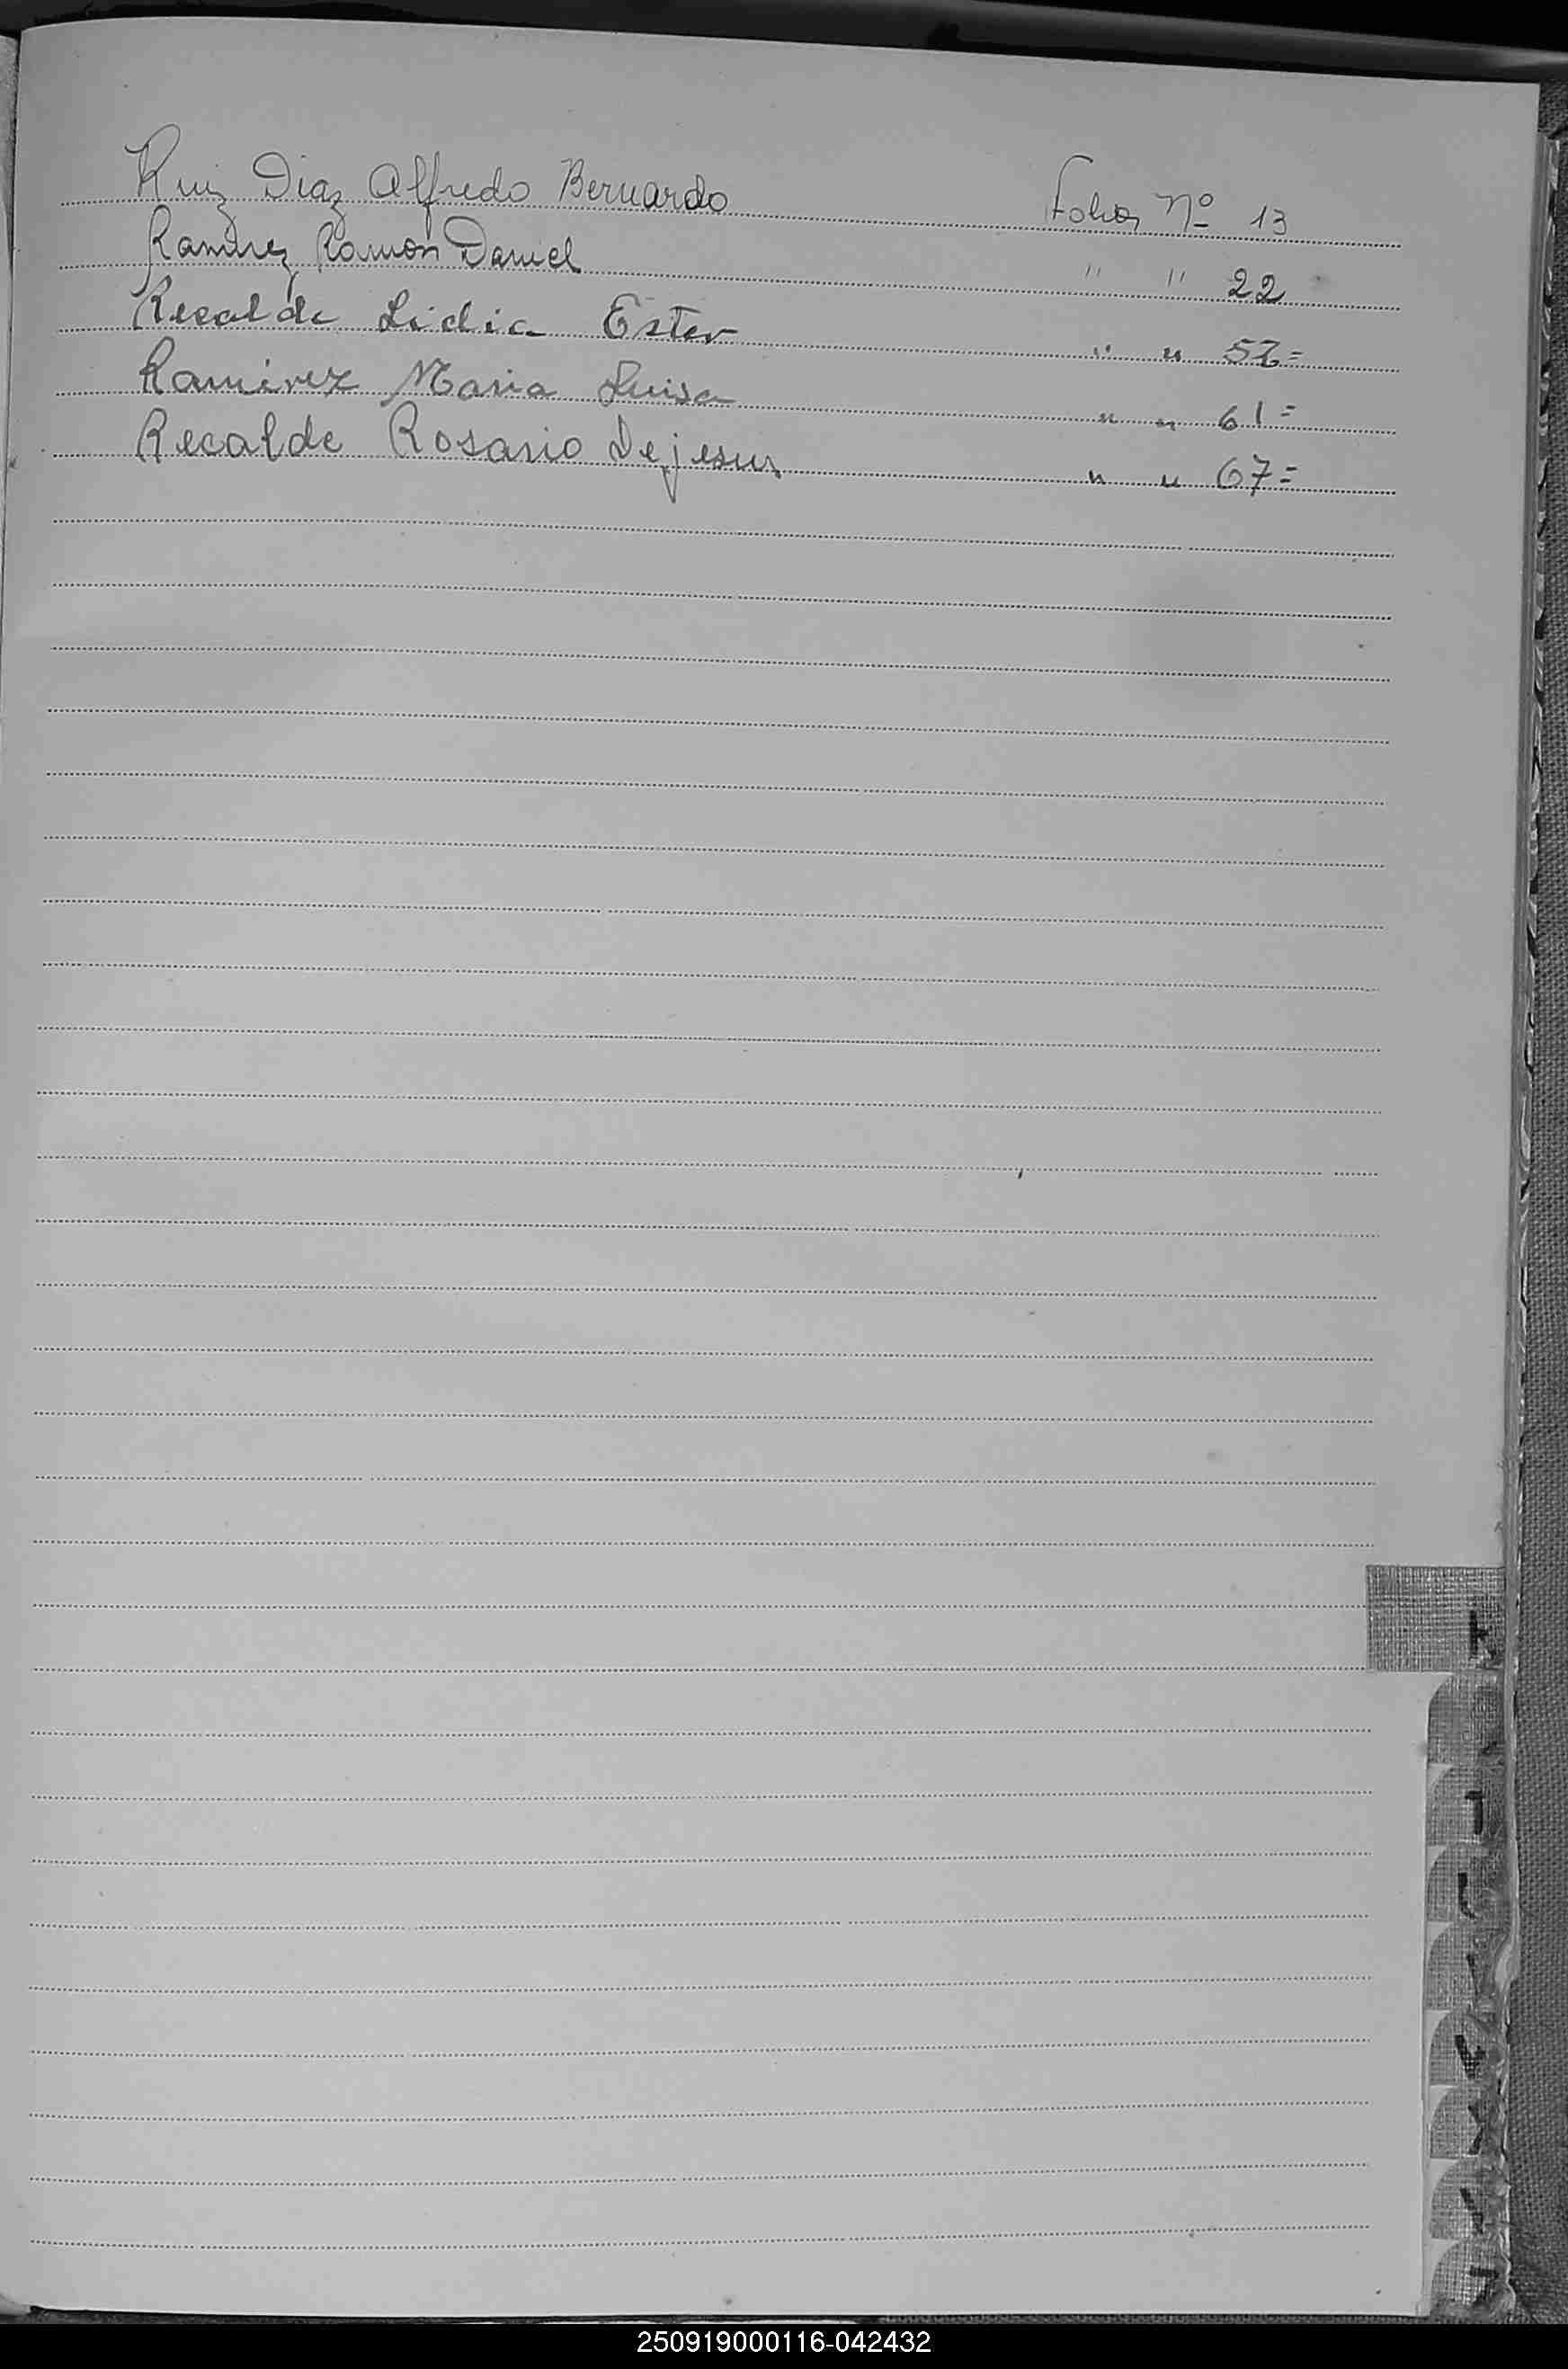 Ruiz Diaz Alfredo Bernardo Folio Nº 13
Ramirez Ramon Daniel " " 22
Recalde Lidia Ester " " 57=
Ramirez Maria Luisa " " 61=
Recalde Rosario Dejesus " " 67=
250919000116-042432